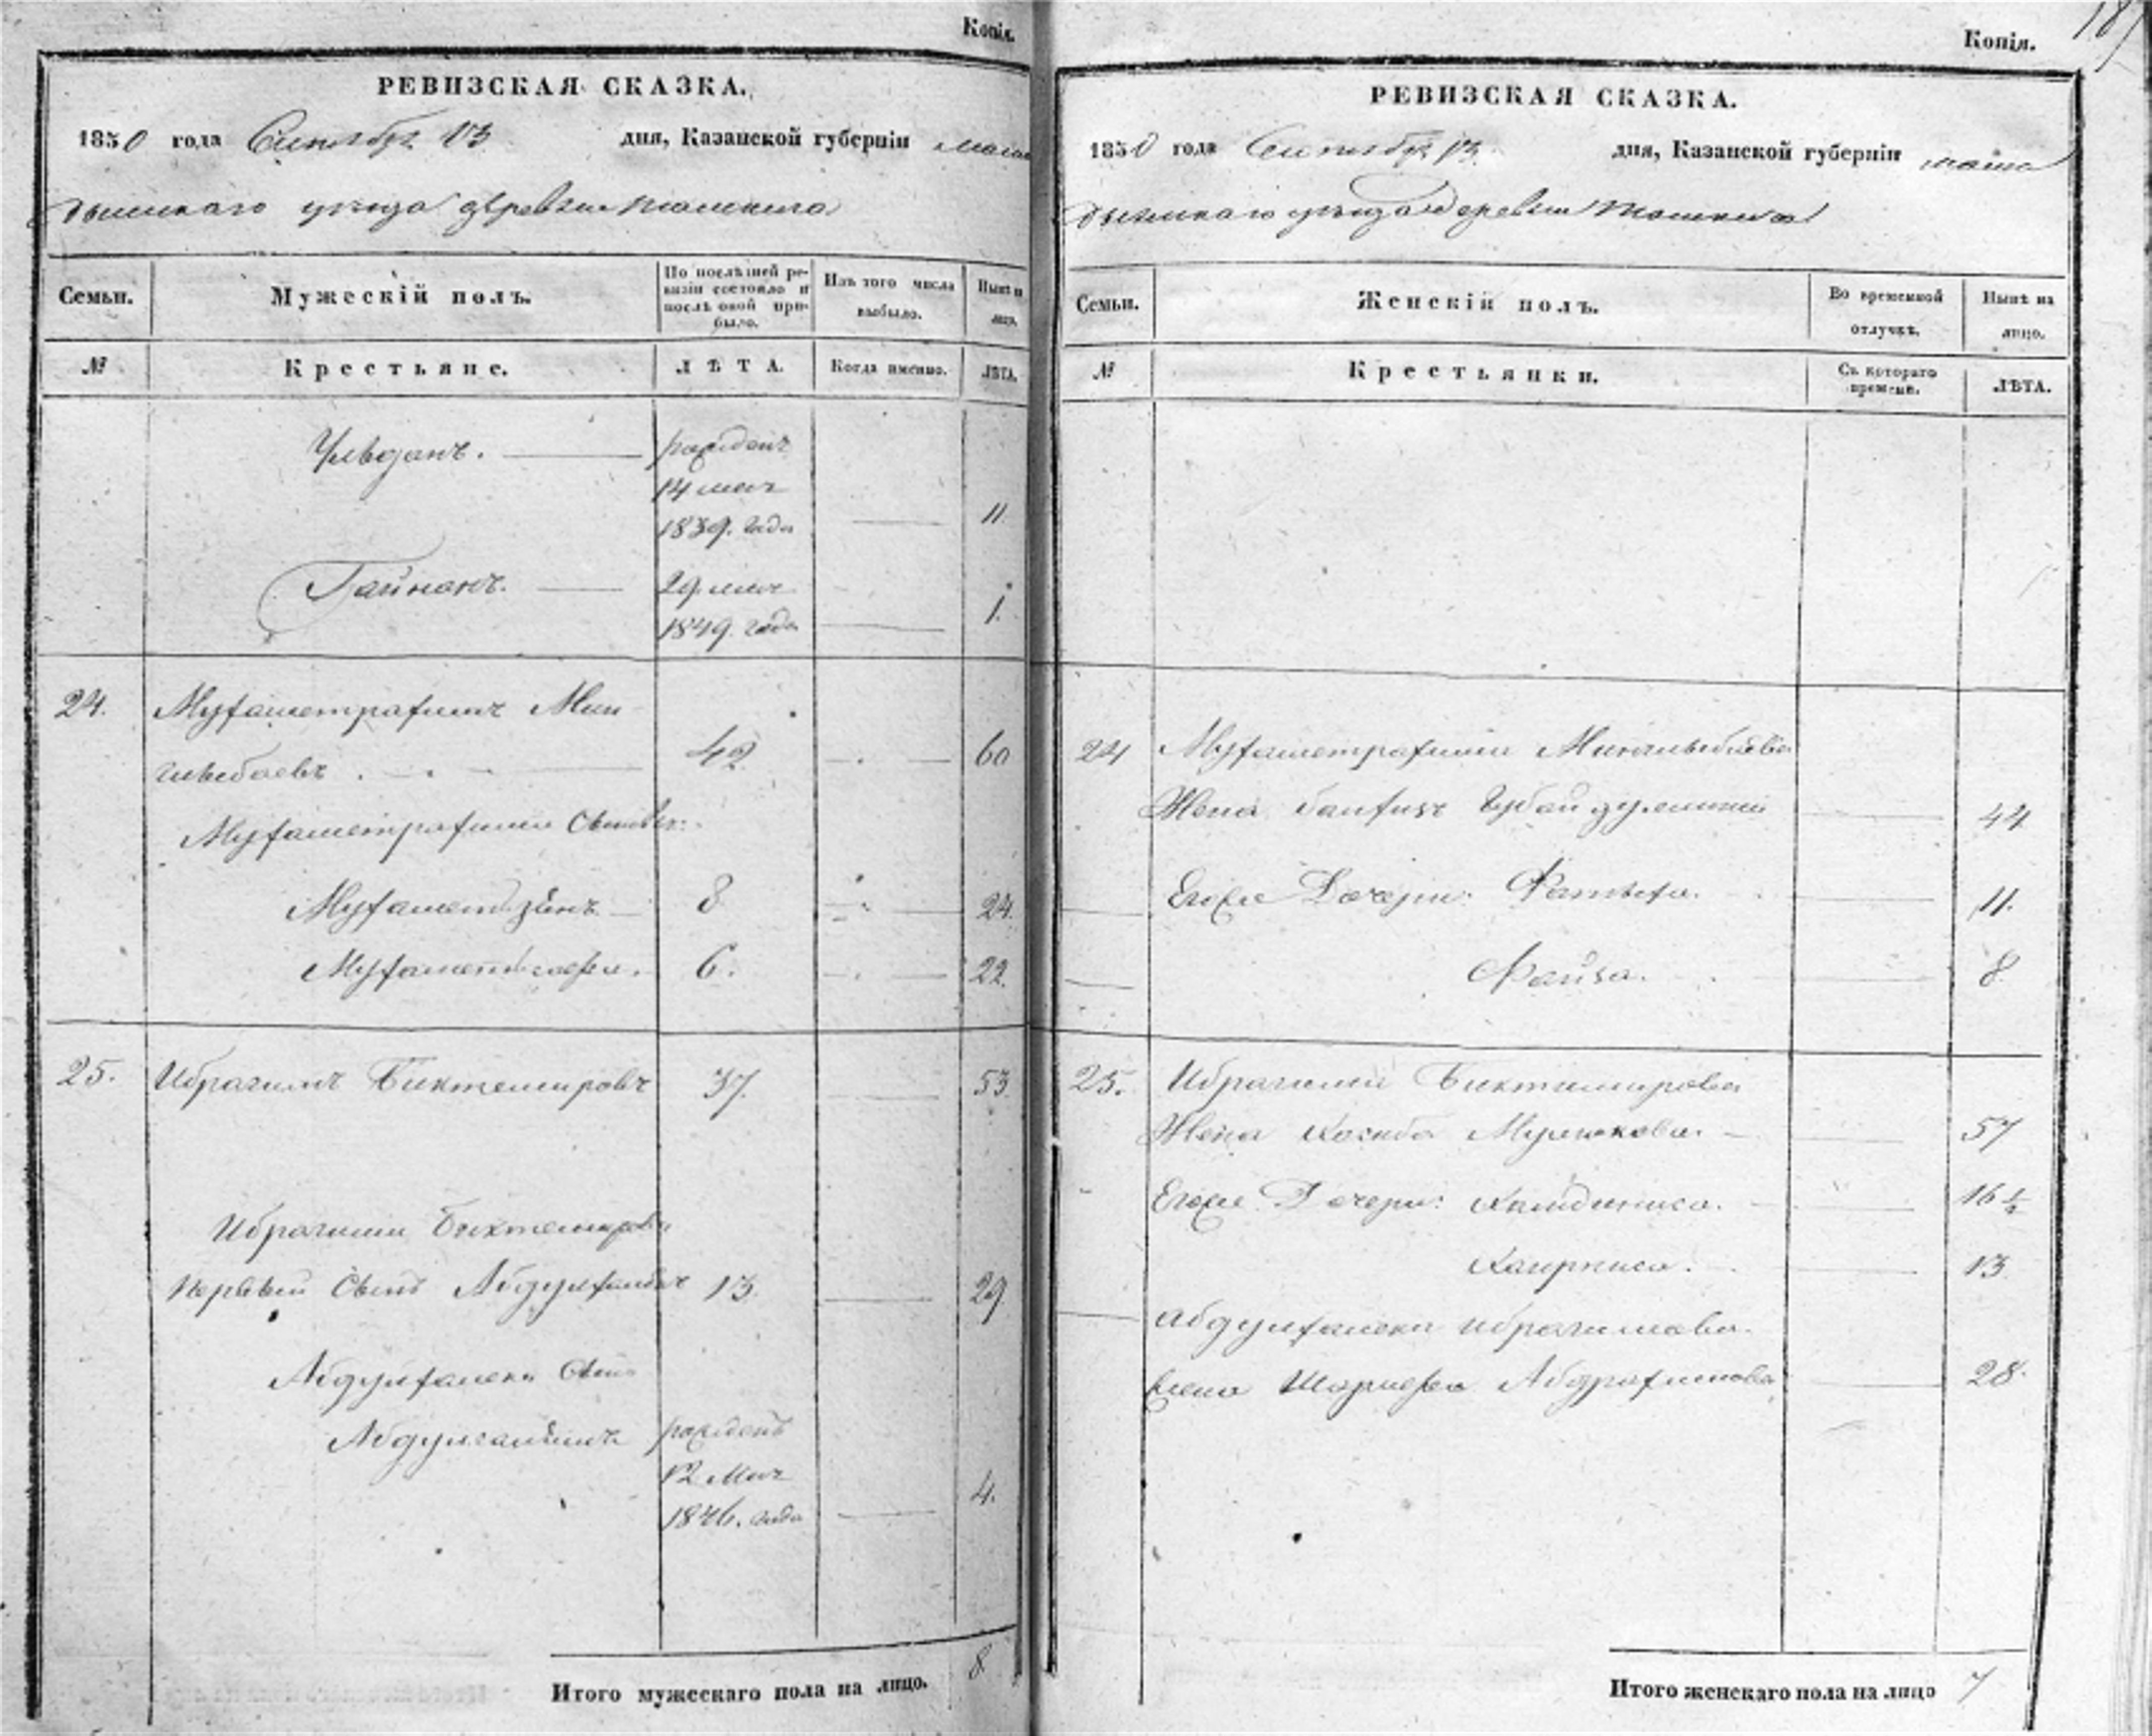 Копія.
РЕВИЗСКАЯ СКАЗКА.
1850 года Сентября 13 дня, Казанской губерніи Мама
дышскаго уезда деревни
Семьи. Мужескій полъ. По послѣдней ре-
визіи состояло и
послѣ оной при-
было. Изъ того числа
выбыло. Нынѣ на
лицо.
№ Крестьяне. ЛѢТА. Когда именно. ЛѢТА.
рожденъ
14 мая
1839. года 11.
Гайнанъ. 29 мая
1849. года 1.
24. Мухаметрахимъ Мин
гильбаевъ 42 60
Мухаметрахима Сыновья:
Мухаметзянъ 8 24.
6. 22.
25. Ибрагимъ Биктемировъ 37. 53.
Ибрагима Биктемирова
первый Сынъ 13. 29
Сынъ
рожденъ
12 мая
1846. года 4.
Итого мужескаго пола на лицо. 8
Копія.
РЕВИЗСКАЯ СКАЗКА.
1850 года Сентября 13 дня, Казанской губерніи Мама
дышскаго уезда деревни
Семьи. Женскій полъ. Во временной
отлучкѣ. Нынѣ на
лицо.
№ Крестьянки. Съ котораго
времени. ЛѢТА.
24 Мухаметрахима Мингильбаева
Жена 44
Его же Дочери: 11.
Файза. 8
25. Ибрагима Биктимирова
Жена Мулюкова. 57
Его же Дочери: 16 ½
Хаирниса. 13
Ибрагимова
жена 28.
Итого женскаго пола на лицо 7